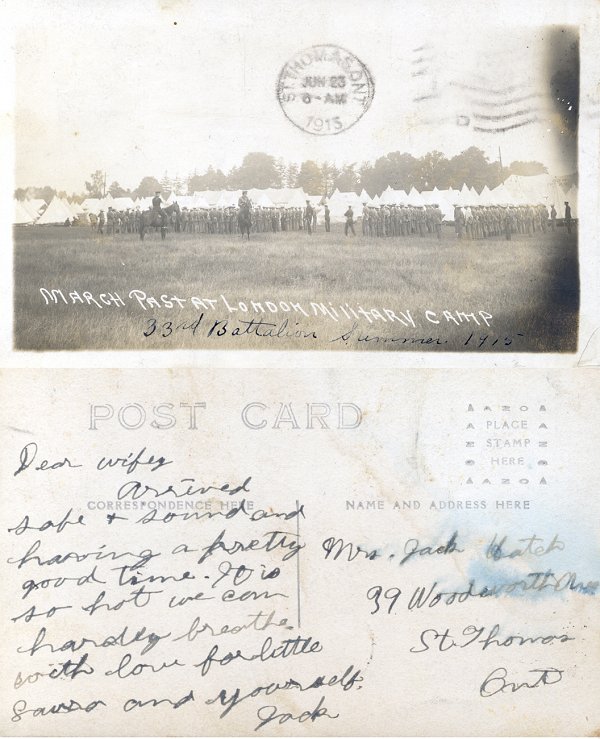 ST. THOMAS, ONT.
JUN 23
6-AM
1915
MARCH PAST AT LONDON MILITARY CAMP
33rd Battalion Summer 1915
POST CARD
AZO
PLACE
STAMP
HERE
AZO
Dear wifey
Arrived
CORRESPONDENCE HERE
NAME AND ADDRESS HERE
safe + sound and
having a pretty
good time. It is
so hot we can
hardly breathe
with love for little
and yourself.
Jack
Mrs. Jack Hatch
39 Woodsworth Ave
St. Thomas
Ont